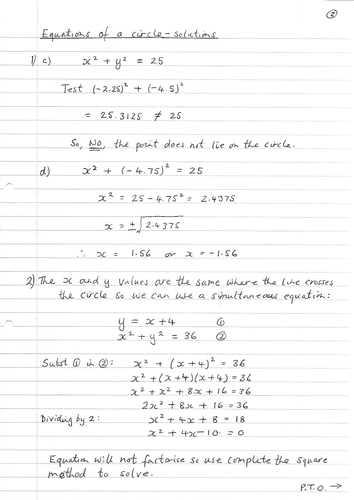 ③
Equations of a circle - solutions
1) c) x² + y² = 25
Test (-2.25)² + (-4.5)²
= 25.3125 ≠ 25
So, No, the point does not lie on the circle.
d) x² + (-4.75)² = 25
x² = 25 - 4.75² = 2.4375
x = ±√2.4375
∴ x = 1.56 or x = -1.56
2) The x and y values are the same where the line crosses
the circle so we can use a simultaneous equation:
y = x + 4 ①
x² + y² = 36 ②
Subst ① in ②: x² + (x + 4)² = 36
x² + (x + 4)(x + 4) = 36
x² + x² + 8x + 16 = 36
2x² + 8x + 16 = 36
Dividing by 2: x² + 4x + 8 = 18
x² + 4x - 10 = 0
Equation will not factorise so use complete the square
method to solve.
P.T.O. →